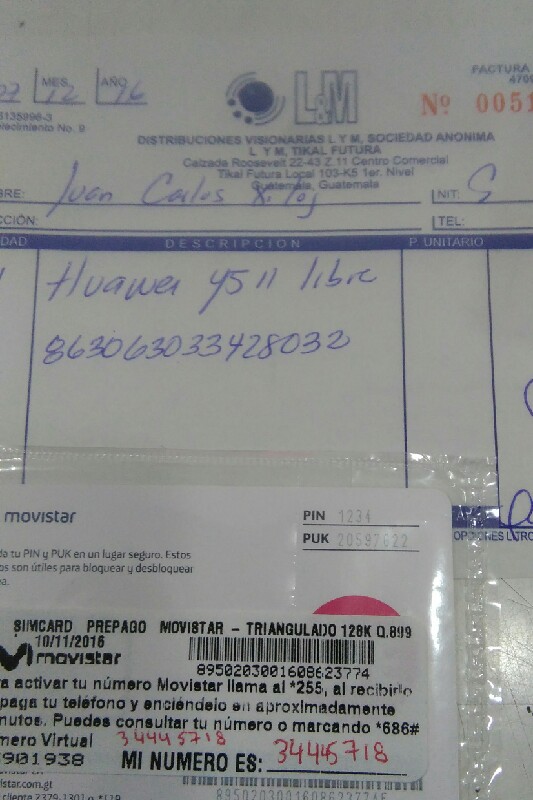 07 MES 12 AÑO 16
L&M
FACTURA
Nº 0051
DISTRIBUCIONES VISIONARIAS L Y M, SOCIEDAD ANONIMA
L Y M, TIKAL FUTURA
Calzada Roosevelt 22-43 Z.11 Centro Comercial
Tikal Futura Local 103-K5 1er. Nivel
Guatemala, Guatemala
BRE: Juan Carlos NIT:
CCIÓN: TEL:
DAD DESCRIPCION P. UNITARIO
Huawei y511 libre
863063033428032
movistar
PIN 1234
PUK 20597022
da tu PIN y PUK en un lugar seguro. Estos
os son útiles para bloquear y desbloquear
a.
SIMCARD PREPAGO MOVISTAR - TRIANGULADO 128K Q.899
10/11/2016
movistar
8950203001608623774
a activar tu número Movistar llama al *255, al recibirlo
paga tu teléfono y enciéndelo en aproximadamente
nutos. Puedes consultar tu número o marcando *686#
mero Virtual 34445718
901938 MI NUMERO ES: 34445718
star.com.gt